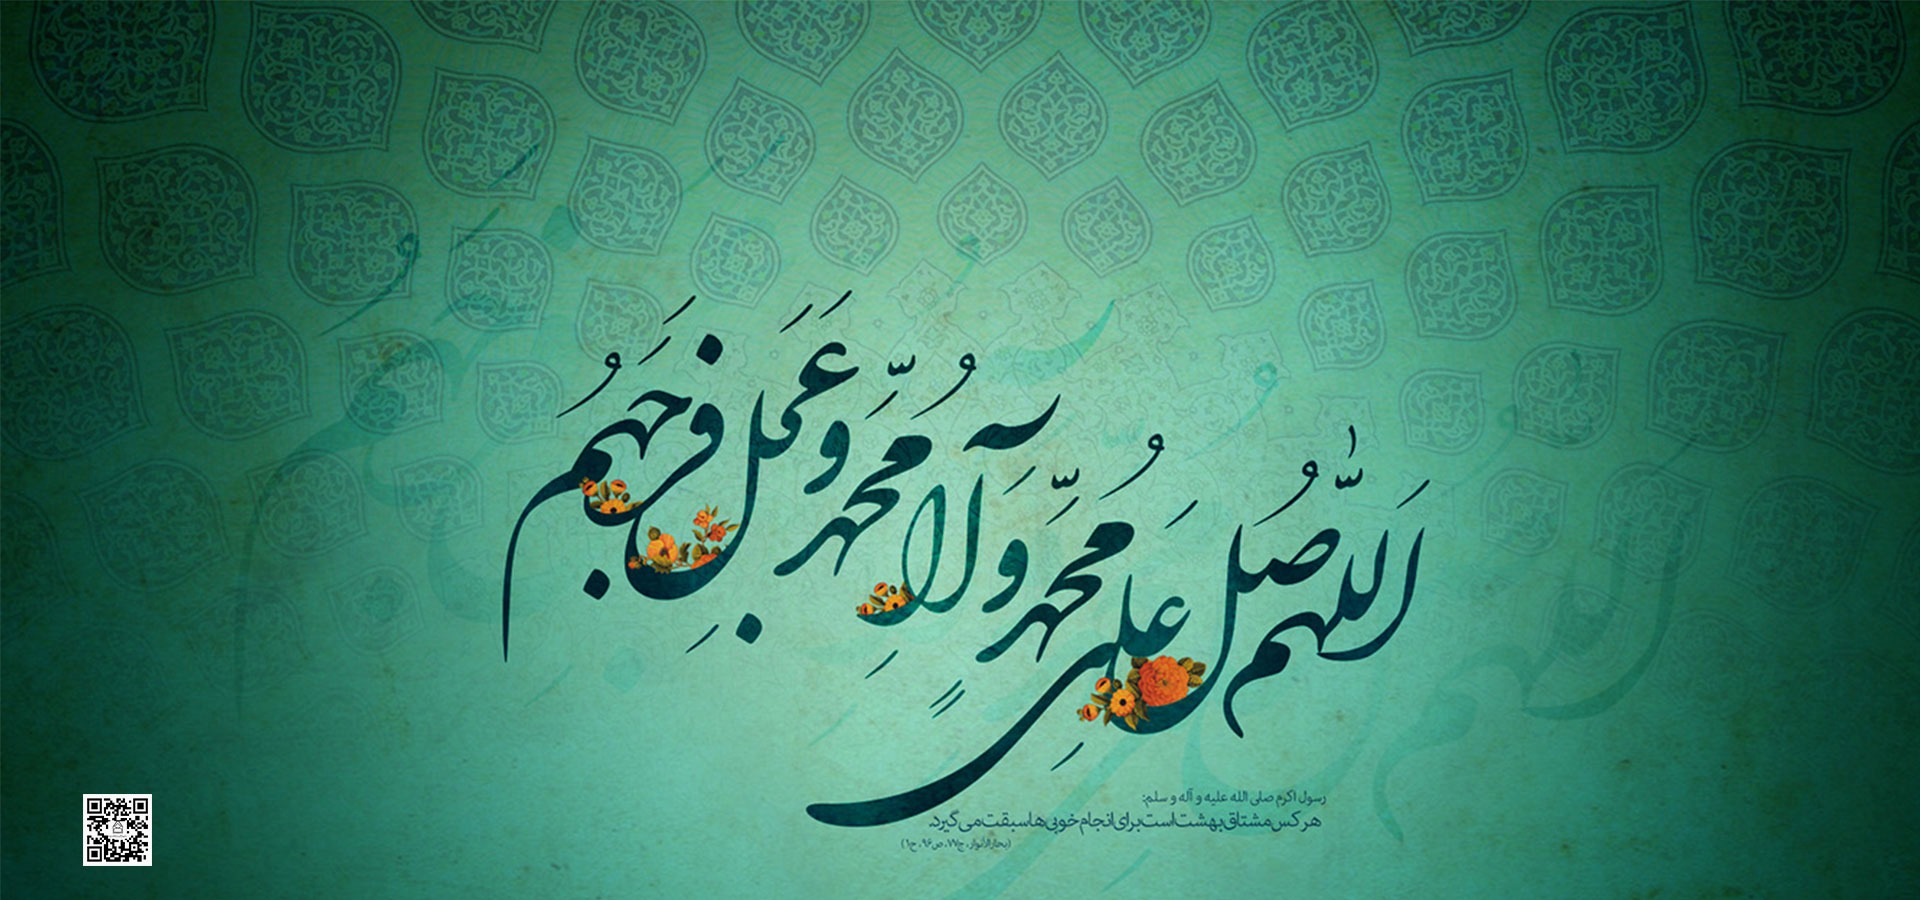 اَللّٰهُمَّ صَلِّ عَلٰی مُحَمَّدٍ وَ آلِ مُحَمَّد وَ عَجِّل فَرَجَهُم
رسول اکرم صلی الله علیه و آله و سلم:
هر کس مشتاق بهشت است برای انجام خوبی ها سبقت می گیرد.
(بحارالأنوار، ج۷۷، ص۹۶، ح۱)